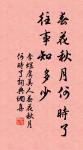 春花秋月何時了
往事知多少
李煜虞美人春花秋月
何時了詞典網喜